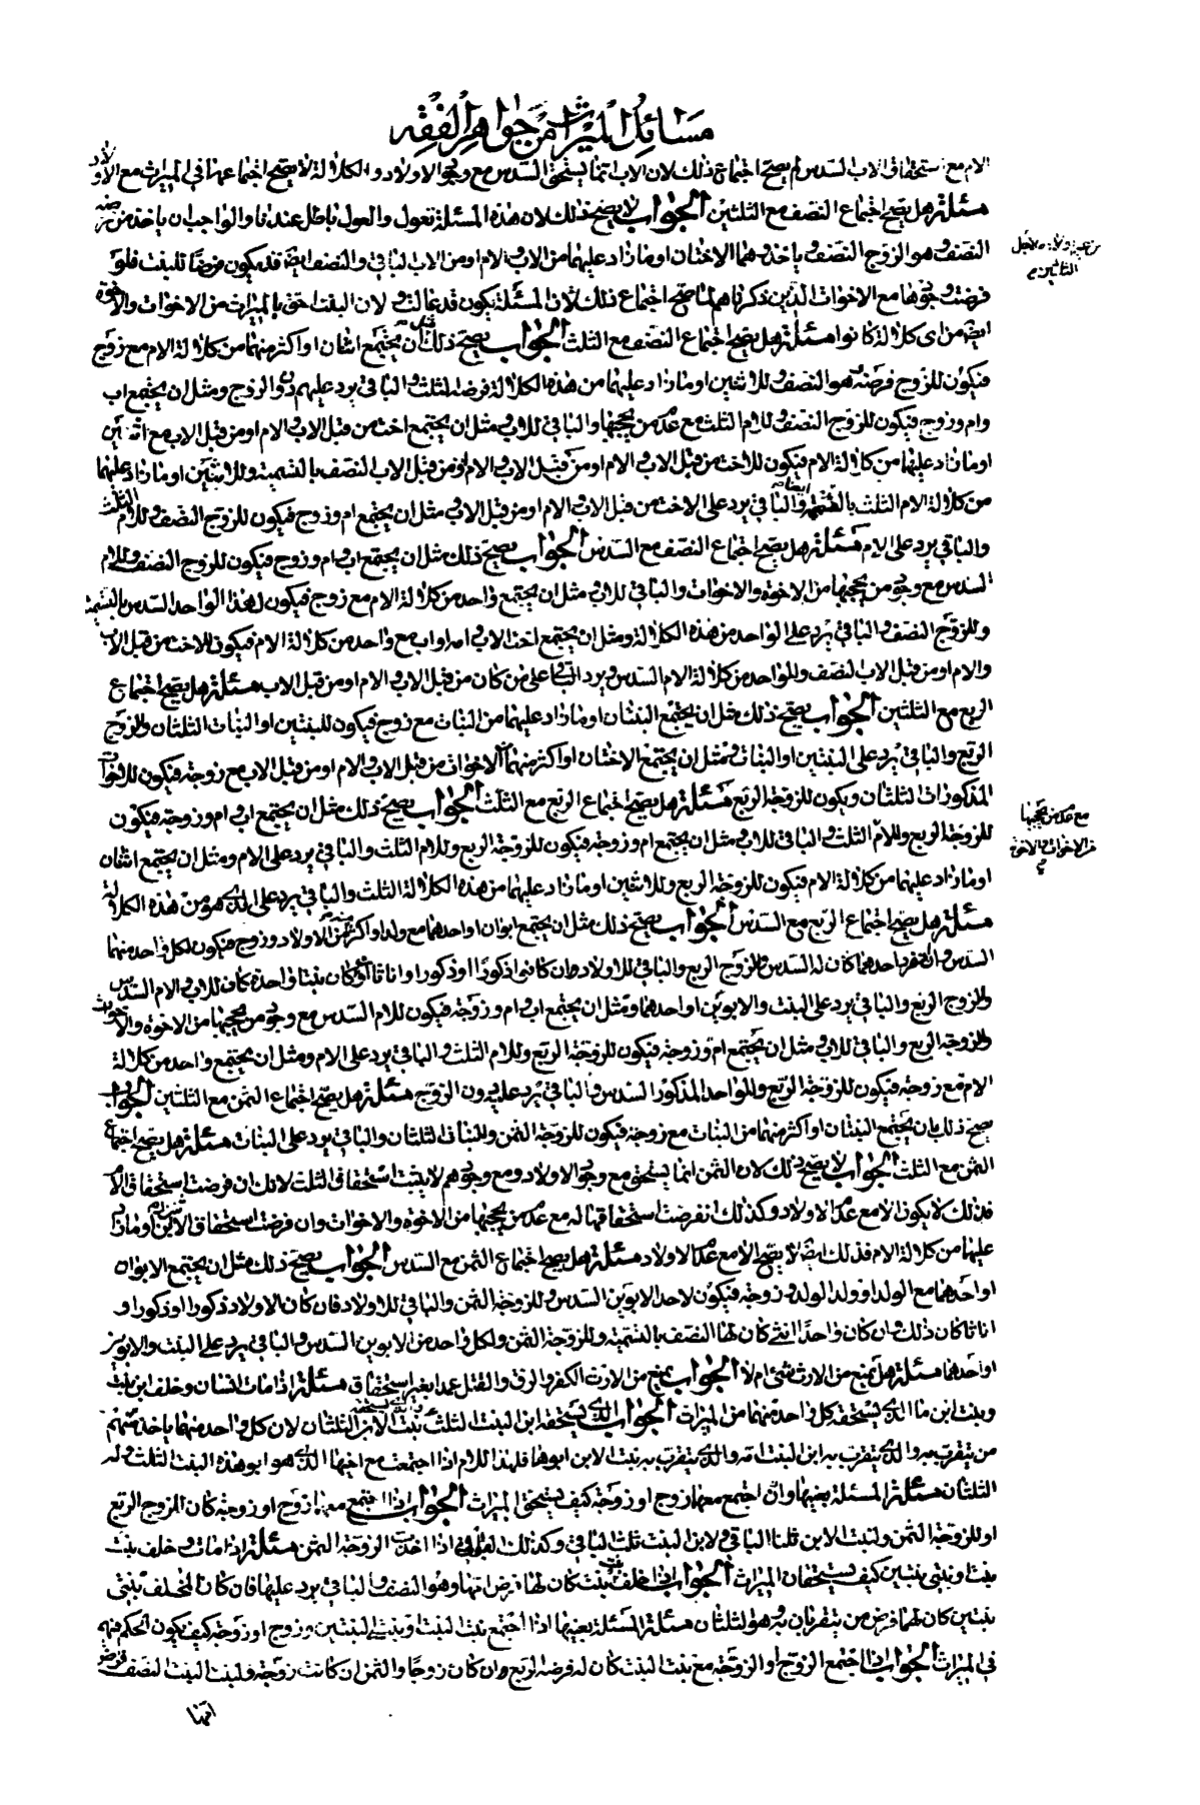 مسائل الميراث من جواهر الفقه
الام مع استحقاق الاب السدس لم يصح اجتماع ذلك لان الاب انما يستحق السدس مع وجود الاولاد والكلالة لا يصح اجتماعها في الميراث مع الاولاد
مسئلة هل يصح اجتماع النصف مع الثلثين الجواب لا يصح ذلك لان هذه المسئلة تعول والعول باطل عندنا والواجب ان ياخذ من فرضه
النصف وهو الزوج النصف وياخذ وهما الاختان او ما زاد عليهما من الاب والام او من الاب الباقي والنصف ايضا قد يكون فرضا للبنت فلو
فرضت وجودها مع الاخوات الذين ذكرناهم لما صح اجتماع ذلك لان المسئلة يكون قد عالت ولان البنت احق بالميراث من الاخوات والاخوة
ايضا من اى كلالة كانوا مسئلة هل يصح اجتماع النصف مع الثلث الجواب يصح ذلك مثل ان يجتمع اثنان او اكثر منهما من كلالة الام مع زوج
فيكون للزوج فرضه وهو النصف وللاثنين او ما زاد عليهما من هذه الكلالة فرض الثلث والباقي يرد عليهم دون الزوج ومثل ان يجتمع اب
وام وزوج فيكون للزوج النصف وللام الثلث مع عدم من يحجبها والباقي للاب ومثل ان يجتمع اخت من قبل الاب والام او من قبل الاب مع اثنين
او ما زاد عليهما من كلالة الام فيكون للاخت من قبل الاب والام او من قبل الاب النصف بالتسمية وللاثنين او ما زاد عليهما
من كلالة الام الثلث بالتسمية ايضا والباقي يرد على الاخت من قبل الاب والام او من قبل الاب ومثل ان يجتمع ام وزوج فيكون للزوج النصف وللام الثلث
والباقي يرد على الام مسئلة هل يصح اجتماع النصف مع السدس الجواب يصح ذلك مثل ان يجتمع اب وام وزوج فيكون للزوج النصف وللام
السدس مع وجود من يحجبها من الاخوة والاخوات والباقي للاب ومثل ان يجتمع واحد من كلالة الام مع زوج فيكون لهذا الواحد السدس بالتسمية
وللزوج النصف والباقي يرد على الواحد من هذه الكلالة ومثل ان يجتمع اخت لاب وام او اب مع واحد من كلالة الام فيكون للاخت من قبل الاب
والام او من قبل الاب النصف وللواحد من كلالة الام السدس ويرد الباقي على من كان من قبل الاب والام او من قبل الاب مسئلة هل يصح اجتماع
الربع مع الثلثين الجواب يصح ذلك مثل ان يجتمع البنتان او ما زاد عليهما من البنات مع زوج فيكون للبنتين او البنات الثلثان وللزوج
الربع والباقي يرد على البنتين او البنات ومثل ان يجتمع الاختان او اكثر منهما من الاخوات من قبل الاب والام او من قبل الاب مع زوجة فيكون للاخوات
المذكورات الثلثان ويكون للزوجة الربع مسئلة هل يصح اجتماع الربع مع الثلث الجواب يصح ذلك مثل ان يجتمع اب وام وزوجة فيكون
للزوجة الربع وللام الثلث والباقي للاب ومثل ان يجتمع ام وزوجة فيكون للزوجة الربع وللام الثلث والباقي يرد على الام ومثل ان يجتمع اثنان
مع عدم من يحجبها
من الاخوات والاخوة
او ما زاد عليهما من كلالة الام فيكون للزوجة الربع وللاثنين او ما زاد عليهما من هذه الكلالة الثلث والباقي يرد على الذي هو من هذه الكلالة
مسئلة هل يصح اجتماع الربع مع السدس الجواب يصح ذلك مثل ان يجتمع ابوان او احدهما مع ولد او اكثر منه من الاولاد وزوج فيكون لكل واحد منهما
السدس وان انفرد احدهما كان له السدس وللزوج الربع والباقي للاولاد وان كانوا ذكورا او ذكورا واناثا وان كان بنتا واحدة كان للاب او الام السدس
وللزوج الربع والباقي يرد على البنت والابوين او احدهما ومثل ان يجتمع اب وام وزوجة فيكون للام السدس مع وجود من يحجبها من الاخوة والاخوات
وللزوجة الربع والباقي للاب ومثل ان يجتمع ام وزوجة فيكون للزوجة الربع وللام الثلث والباقي يرد على الام ومثل ان يجتمع واحد من كلالة
الام مع زوجة فيكون للزوجة الربع وللواحد المذكور السدس والباقي يرد عليه دون الزوج مسئلة هل يصح اجتماع الثمن مع الثلثين الجواب
يصح ذلك بان يجتمع البنتان او اكثر منهما من البنات مع زوجة فيكون للزوجة الثمن وللبنات الثلثان والباقي يرد على البنات مسئلة هل يصح اجتماع
الثمن مع الثلث الجواب لا يصح ذلك لان الثمن انما يستحق مع وجود الاولاد ومع وجودهم لا يثبت استحقاق الثلث لانك ان فرضت استحقاق الام
فذلك لا يكون الا مع عدم الاولاد وكذلك ان فرضت استحقاقها له مع عدم من يحجبها من الاخوة والاخوات وان فرضت استحقاق الاثنين او ما زاد
عليهما من كلالة الام فذلك ايضا لا يصح الا مع عدم الاولاد مسئلة هل يصح اجتماع الثمن مع السدس الجواب يصح ذلك مثل ان يجتمع الابوان
او احدهما مع الولد او ولد الولد وزوجة فيكون لاحد الابوين السدس وللزوجة الثمن والباقي للاولاد فان كان الاولاد ذكورا او ذكورا و
اناثا كان ذلك وان كان واحدا انثى كان لها النصف بالتسمية وللزوجة الثمن ولكل واحد من الابوين السدس والباقي يرد على البنت والابوين
او احدهما مسئلة هل يمنع من الارث شئ ام لا الجواب يمنع من الارث الكفر والرق والقتل عمدا بغير استحقاق مسئلة اذا مات انسان وخلف ابن بنت
وبنت ابن ما الذي يستحقه كل واحد منهما من الميراث الجواب الذي يستحقه ابن البنت الثلث والذي يستحقه بنت الابن الثلثان لان كل واحد منهما ياخذ سهم
من يتقرب به والذي يتقرب به ابن البنت امه والذي يتقرب به بنت الابن ابوها فلهذا للام اذا اجتمعت مع اخيها الذي هو ابو هذه البنت الثلث وله
الثلثان مسئلة المسئلة بعينها وان اجتمع معهما زوج او زوجة كيف يستحق الميراث الجواب اذا اجتمع معهما زوج او زوجة كان للزوج الربع
او للزوجة الثمن ولبنت الابن ثلثا الباقي ولابن البنت ثلث الباقي وكذلك القول في اذا اخذت الزوجة الثمن مسئلة اذا مات وخلف بنت
بنت او بنتى بنتين كيف يستحقان الميراث الجواب اذا خلف بنت بنت كان لها فرض امها وهو النصف والباقي يرد عليها فان كان المخلف بنتى
بنتين كان لهما فرض من يتقربان به وهو الثلثان مسئلة المسئلة بعينها اذا اجتمع بنت البنت وبنتى البنتين وزوج او زوجة كيف يكون الحكم فيهم
في الميراث الجواب اذا اجتمع الزوج او الزوجة مع بنت البنت كان له فرضه الربع وان كان زوجا والثمن ان كانت زوجة ولبنت البنت النصف فرض
امها